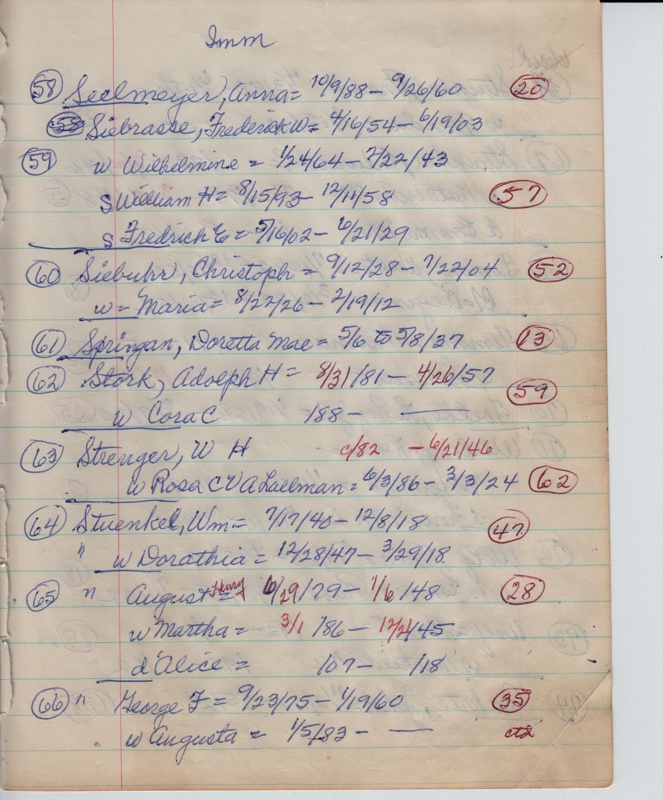 Imm
58 Seelmeyer, Anna = 10/9/88 - 9/26/60 20
Siebrasse, Frederick W = 4/16/54 - 6/19/03
59 w Wilhelmine = 1/24/64 - 7/22/43
s William H = 8/15/93 - 12/11/58 57
s Fredrich E = 5/16/02 - 6/21/29
60 Siebuhr, Christoph = 9/12/28 - 7/22/04 52
w = Maria = 8/22/26 - 2/19/12
61 Springan, Doretta Mae = 5/6 to 5/8/37 13
62 Stork, Adolph H = 8/31/81 - 4/26/57
59
w Cora C 188 - —
63 Strenger, W H c/82 - 6/21/46
w Rosa C V A Lallman = 6/3/86 - 3/3/24 62
64 Stuenkel, Wm = 7/17/40 - 12/8/18 47
" w Dorathia = 12/28/47 - 3/29/18
65 " August Henry = 6/29/79 - 1/6/48 28
w Martha = 3/1/86 - 12/21/45
d Alice = /07 - /18
66 " George F = 9/23/75 - 1/19/60 35
w Augusta = 1/5/83 - —